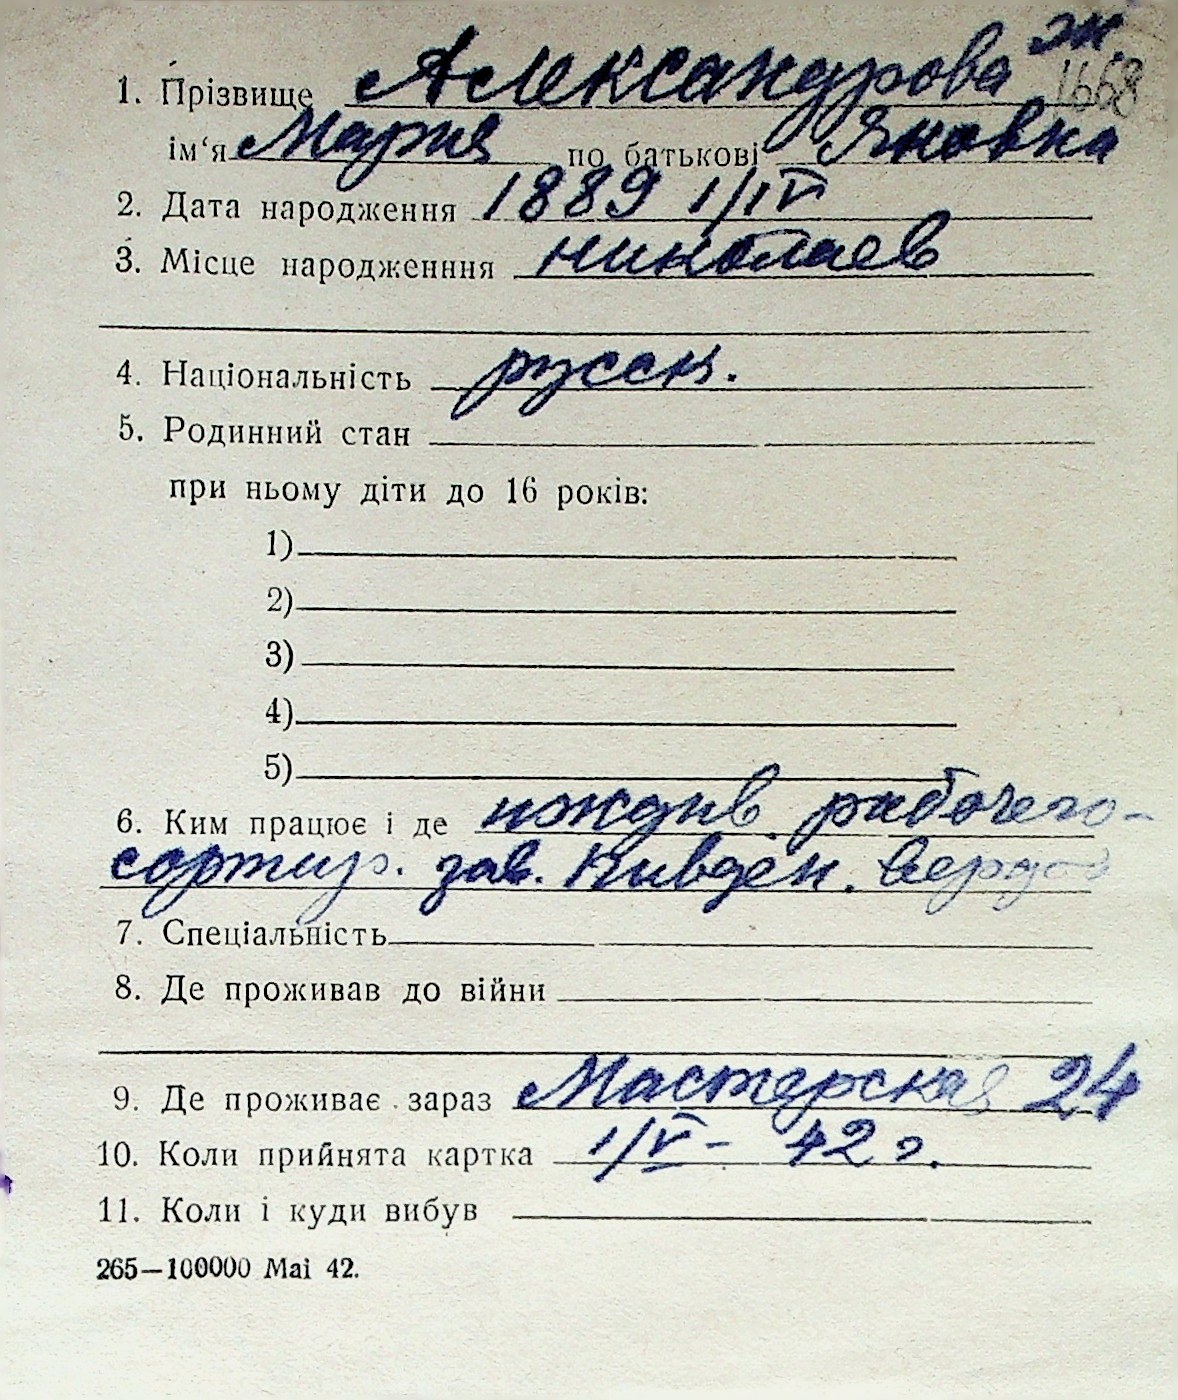 эк.
1. Прізвище Александрова 1668
ім'я Мария по батькові Яковка
2. Дата народження 1889 1/IV
3. Місце народженння николаев
4. Національність русск.
5. Родинний стан
при ньому діти до 16 років:
1)
2)
3)
4)
5)
6. Ким працює і де иждив. рабочего-
сортир. зав. Пивден. Верф
7. Спеціальність
8. Де проживав до війни
9. Де проживає зараз Мастерская 24
10. Коли прийнята картка 1/V - 42 г.
11. Коли і куди вибув
265—100000 Mai 42.